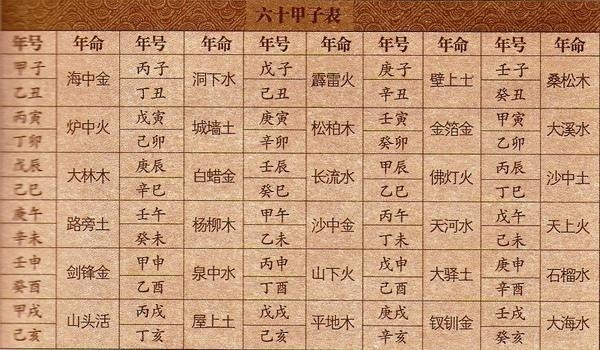 六十甲子表
年号 年命 年号 年命 年号 年命 年号 年命 年号 年命
甲子 海中金 丙子 洞下水 戊子 霹雷火 庚子 壁上土 壬子 桑松木
乙丑 丁丑 己丑 辛丑 癸丑
丙寅 炉中火 戊寅 城墙土 庚寅 松柏木 壬寅 金箔金 甲寅 大溪水
丁卯 己卯 辛卯 癸卯 乙卯
戊辰 大林木 庚辰 白蜡金 壬辰 长流水 甲辰 佛灯火 丙辰 沙中土
己巳 辛巳 癸巳 乙巳 丁巳
庚午 路旁土 壬午 杨柳木 甲午 沙中金 丙午 天河水 戊午 天上火
辛未 癸未 乙未 丁未 己未
壬申 剑锋金 甲申 泉中水 丙申 山下火 戊申 大驿土 庚申 石榴水
癸酉 乙酉 丁酉 己酉 辛酉
甲戌 山头活 丙戌 屋上土 戊戌 平地木 庚戌 钗钏金 壬戌 大海水
乙亥 丁亥 己亥 辛亥 癸亥